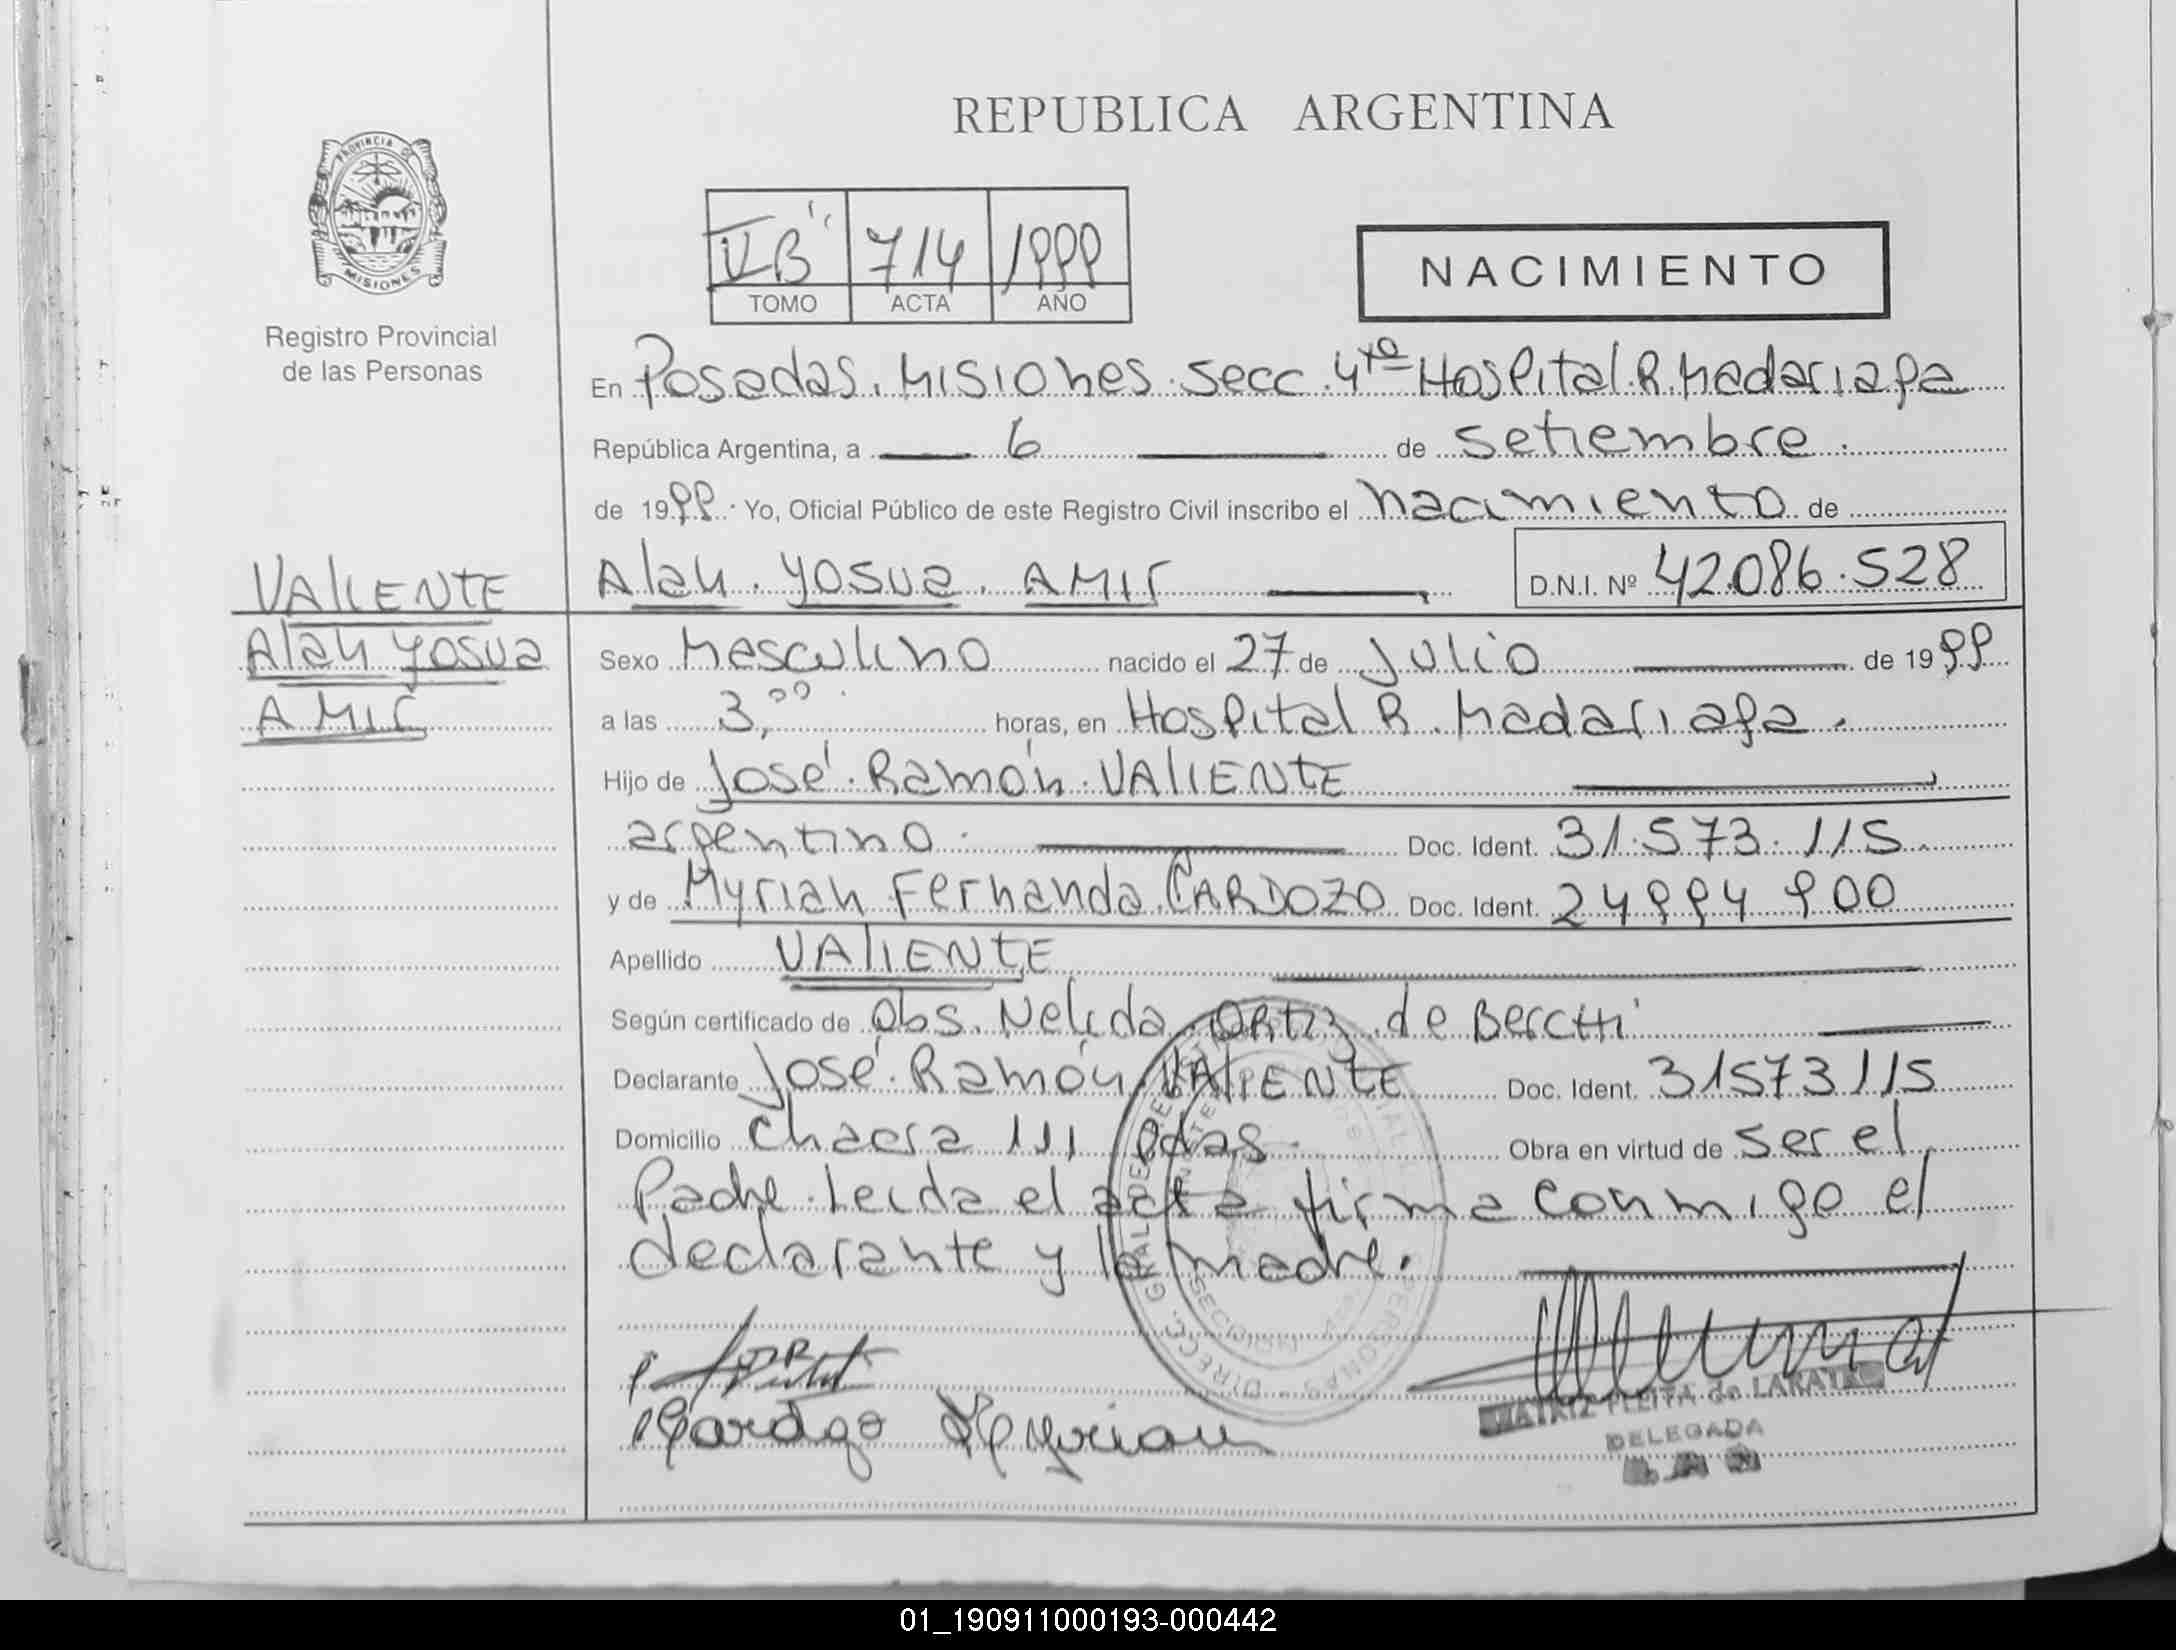 REPUBLICA ARGENTINA
PROVINCIA DE MISIONES
Registro Provincial
de las Personas
VB 714 1999
TOMO ACTA AÑO
NACIMIENTO
En Posadas. Misiones. secc. 4ta Hospital R. Madariaga
República Argentina, a 6 de setiembre.
de 1999. Yo, Oficial Público de este Registro Civil inscribo el nacimiento de
Alan. Yosua. AMIR D.N.I. Nº 42.086.528
VALIENTE
Alan Yosua
AMIR
Sexo Masculino nacido el 27 de Julio de 1999
a las 3,00 horas, en Hospital R. Madariaga.
Hijo de José. Ramón. VALIENTE
argentino. Doc. Ident. 31.573.115.
y de Myrian Fernanda CARDOZO Doc. Ident. 24994900
Apellido VALIENTE
Según certificado de Obs. Nelida Ortiz de Berchi
Declarante José. Ramón VALIENTE Doc. Ident. 31573115
Domicilio Chacra 111 Pdas. Obra en virtud de ser el
Padre. Leida el acta firma conmigo el
declarante y la madre.
Cardozo Myrian
PLEITA de
DELEGADA
01_190911000193-000442